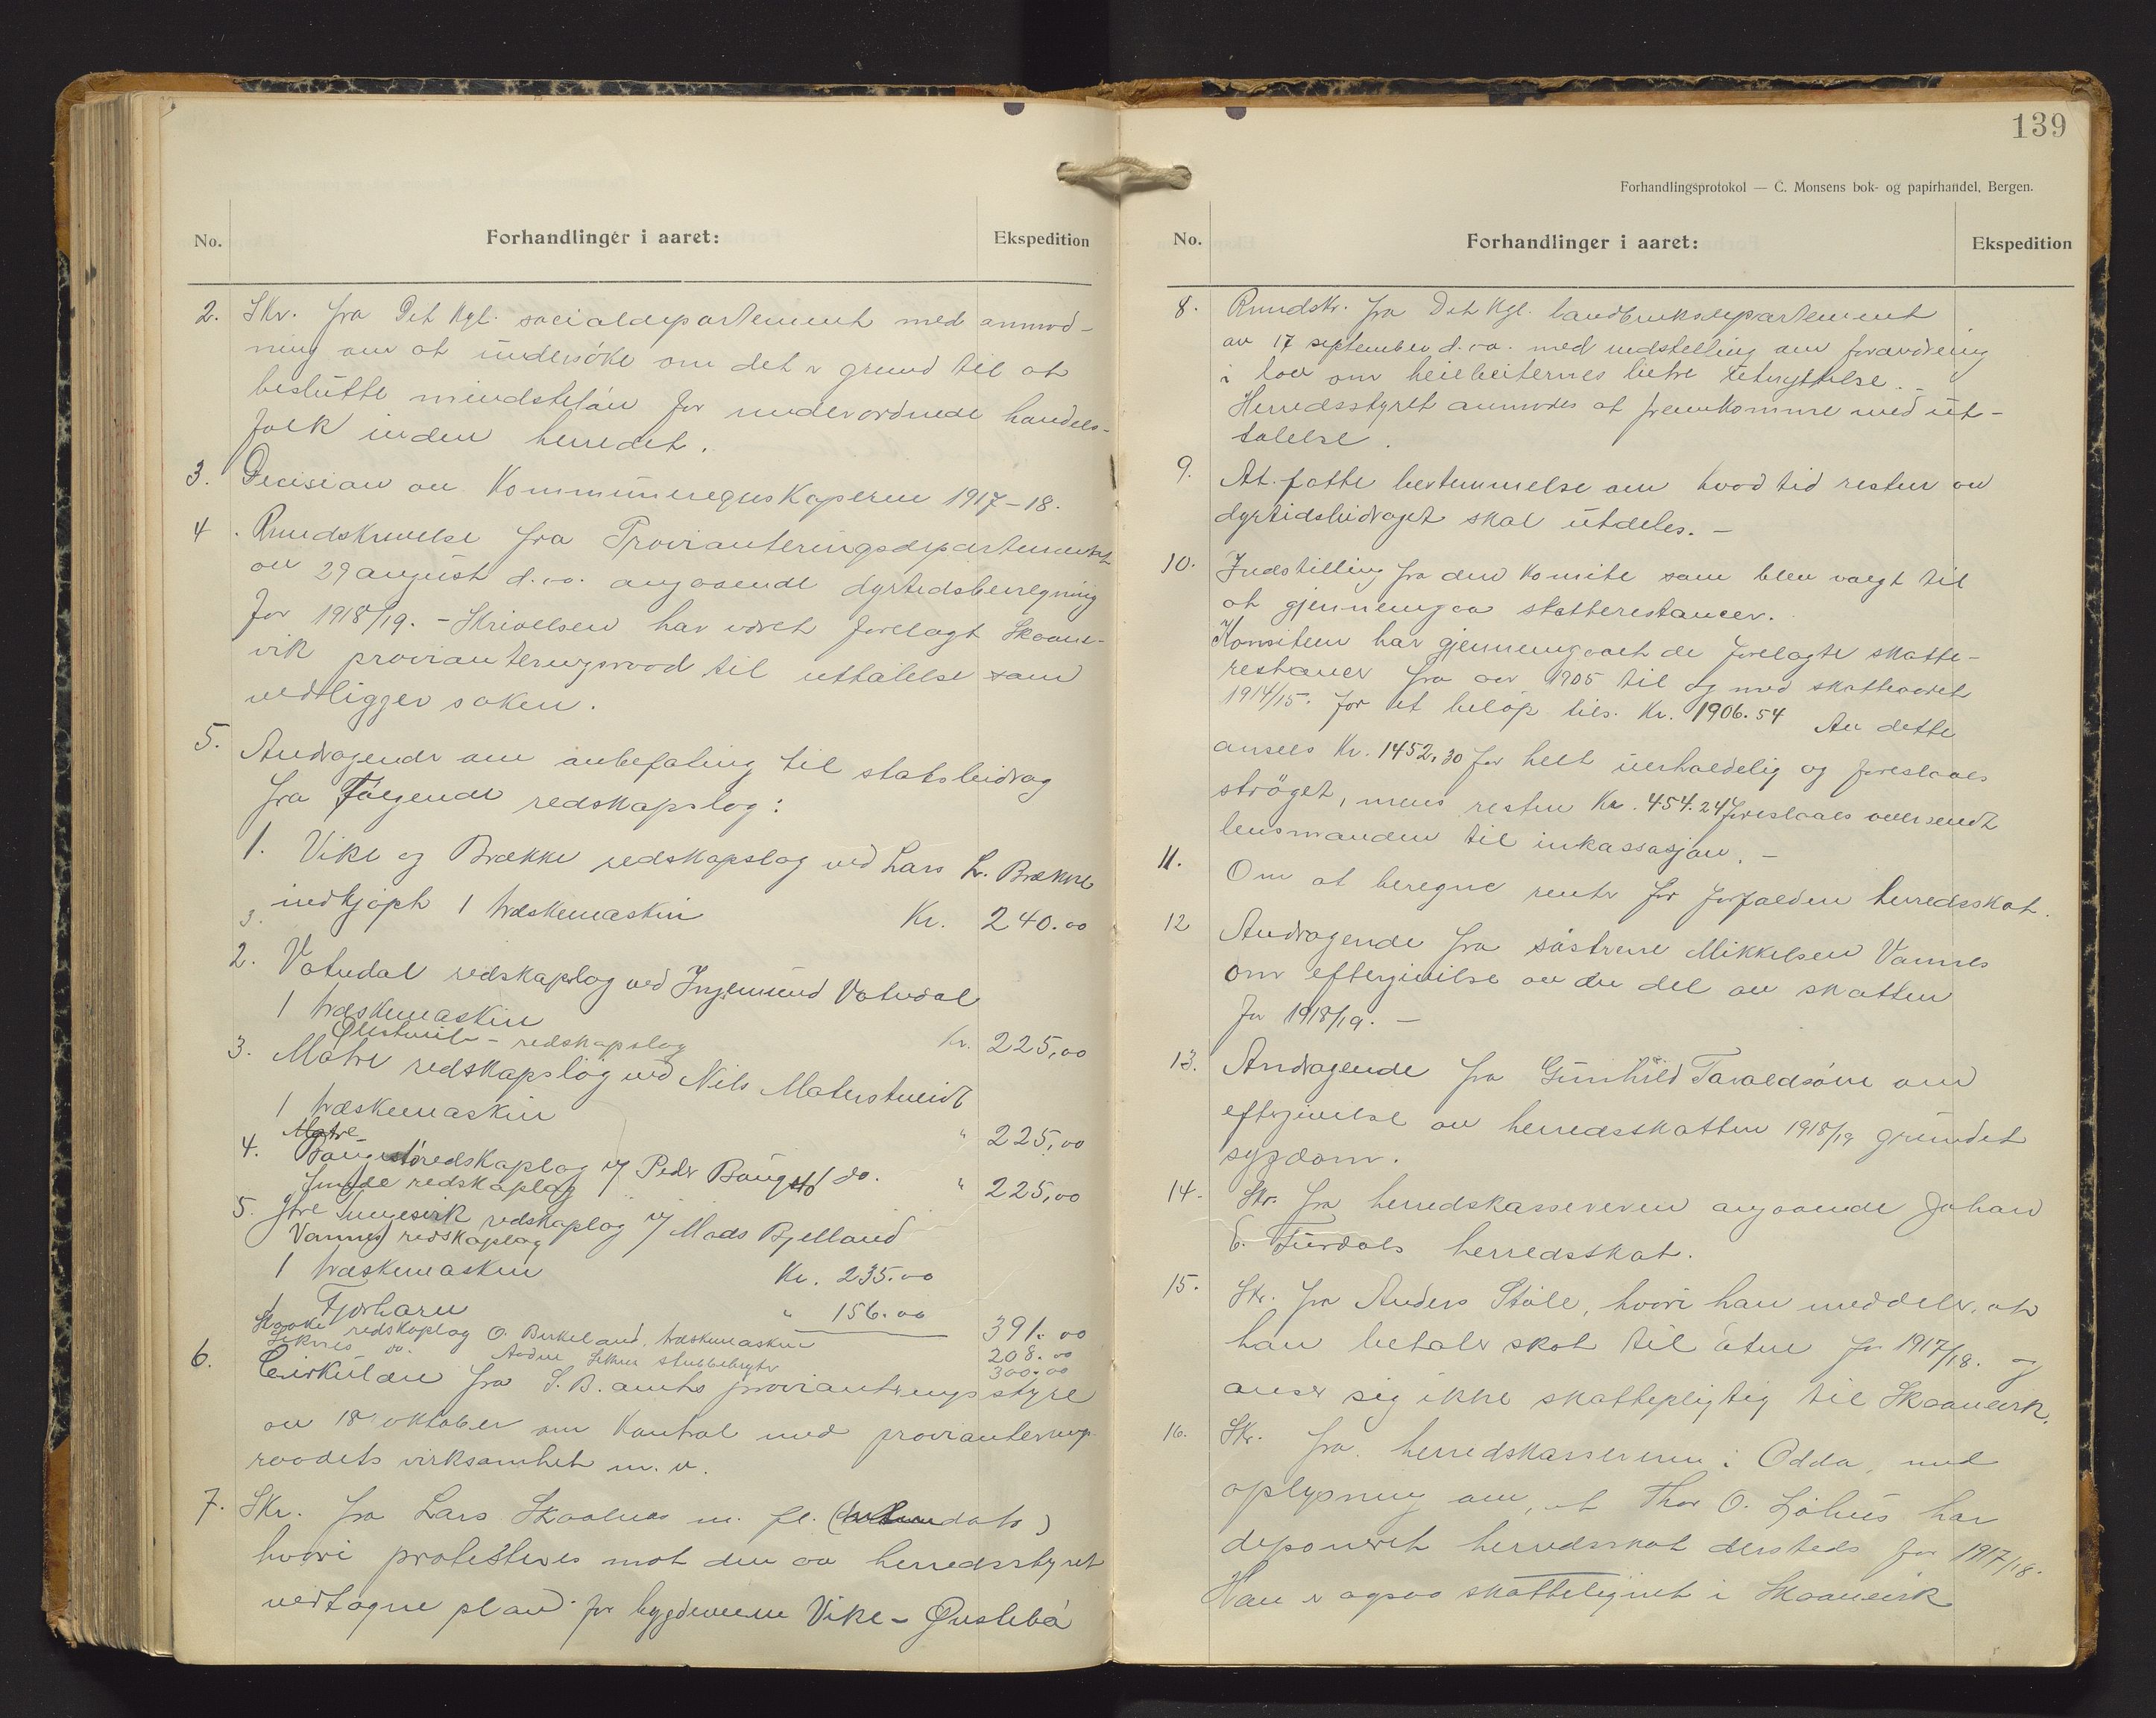 No.
Forhandlinger i aaret:
Ekspedition
2. Skr. fra Det Kgl. socialdepartement med anmod-
ning om at undersøke om det er grund til at
beslutte mindsteløn for underordnede handels-
folk inden herredet.
3. Decision av Kommuneregnskaperne 1917-18.
4. Rundskrivelse fra Provianteringsdepartementet
av 29 august d.a. angaaende dyrtidsberegning
for 1918/19. - Skrivelsen har været forelagt Skaane-
vik provianteringsraad til uttalelse som
vedligger saken.
5. Andragende om anbefaling til statsbidrag
fra følgende redskapslag:
1. Vike og Brække redskapslag ved Lars L. Brække
indkjøpt 1 træskemaskin Kr. 240.00
3.
2. Vatndal redskapslag ved Ingemund Vatndal
1 træskemaskin Kr. 225,00
redskapslag
3. Matre redskapslag ved Nils Materstveidt
1 træskemaskin " 225,00
Matre
4. redskaplag v/ Peder do. " 225,00
redskaplag
5. Ytre redskaplag v/ Mads Bjelland
Vannes redskaplag
1 træskemaskin Kr. 235.00
1 Fjorharv " 156.00
391.00
redskaplag O. Birkeland, træskemaskin 208.00
do. stubbebryter 300.00
6. Cirkulære fra S. B. amts provianteringsstyre
av 18 oktober om kontrol med provianterings-
raadets virksomhet m. v.
7. Skr. fra Lars Skaalnes m. fl. (
hvori protesteres mot den av herredsstyret
vedtagne plan for bygdeveiene Vike - Øvstebø
139
Forhandlingsprotokol — C. Monsens bok- og papirhandel, Bergen.
No.
Forhandlinger i aaret:
Ekspedition
8. Rundskr. fra Det Kgl. landbruksdepartement
av 17 september d.a. med indstilling om forandring
i lov om heiebeiternes bedre utnyttelse. -
Herredsstyret anmodes at fremkomme med ut-
talelse.
9. At fatte bestemmelse om hvad tid resten av
dyrtidsbidraget skal utdeles. -
10. Indstilling fra den komite som blev valgt til
at gjennemgaa skatterestancer.
Komiteen har gjennemgaaet de forelagte skatte-
restancer fra aar 1905 til og med skatteaaret
1914/15. for et beløp tils. Kr. 1906.54 Av dette
ansees Kr. 1452,30 for helt uerholdelig og foreslaaes
strøget, mens resten Kr. 454.24 foreslaaes oversendt
lensmanden til inkassasjon. -
11. Om at beregne rente for forfalden herredsskat.
12 Andragende fra søstrene Mikkelsen Vannes
om eftergivelse av en del av skatten
for 1918/19. -
13. Andragende fra Gunhild Taraldsøn om
eftergivelse av herredsskatten 1918/19 grundet
sygdom.
14. Skr. fra herredskassereren angaaende Johan
E. Tungesviks herredsskat.
15. Skr. fra Anders Støle, hvori han meddeler, at
han betaler skat til Etne for 1917/18. og
anser sig ikke skattepligtig til Skaanevik.
16. Skr. fra herredskassereren i Odda, med
oplysning om, at Thor O. har
deponeret herredsskat dersteds for 1917/18.
Han er ogsaa skattelignet i Skaanevik